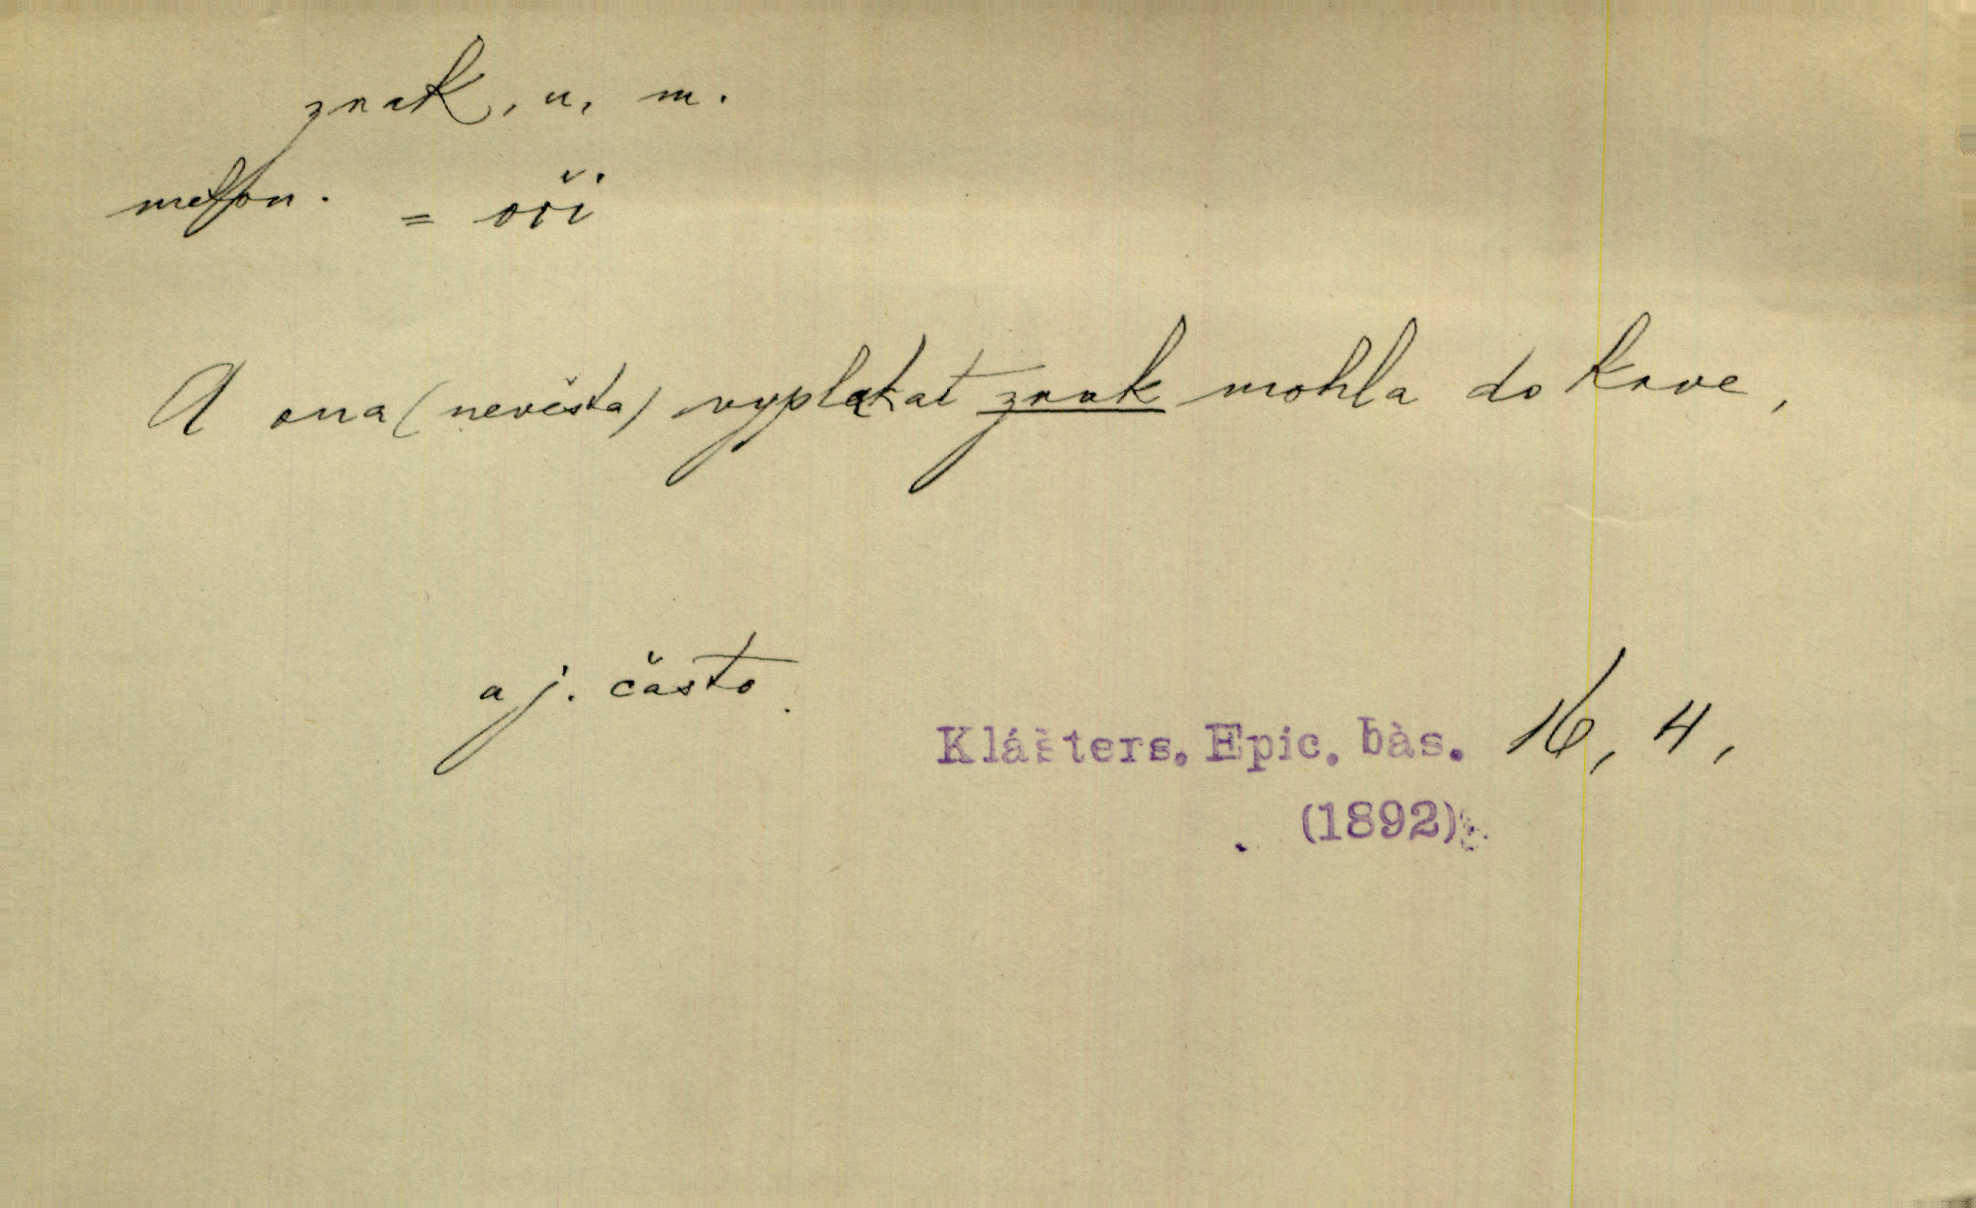 zrak, u, m.
meton. = oči
A ona (nevěsta) vyplakat zrak mohla do krve,
a j. často.
Klášters. Epic. bás. 16, 4,
(1892).